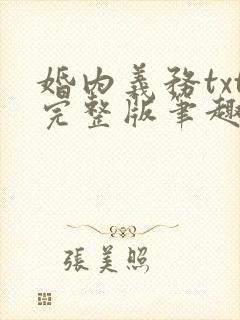 婚內義務txt
完整版筆趣
張美照